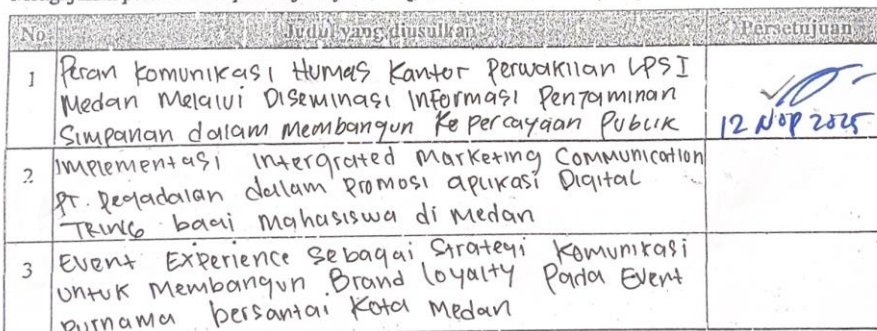 No Judul yang diusulkan Persetujuan
1 Peran Komunikasi Humas Kantor Perwakilan LPSI
Medan Melalui Diseminasi Informasi Penjaminan
Simpanan dalam Membangun Kepercayaan Publik 12 Nop 2025
2. Implementasi Intergrated Marketing Communication
PT. Pegadaian dalam Promosi aplikasi Digital
TRING bagi Mahasiswa di Medan
3 Event Experience Sebagai Strategi Komunikasi
untuk Membangun Brand loyalty Pada Event
purnama bersantai Kota Medan